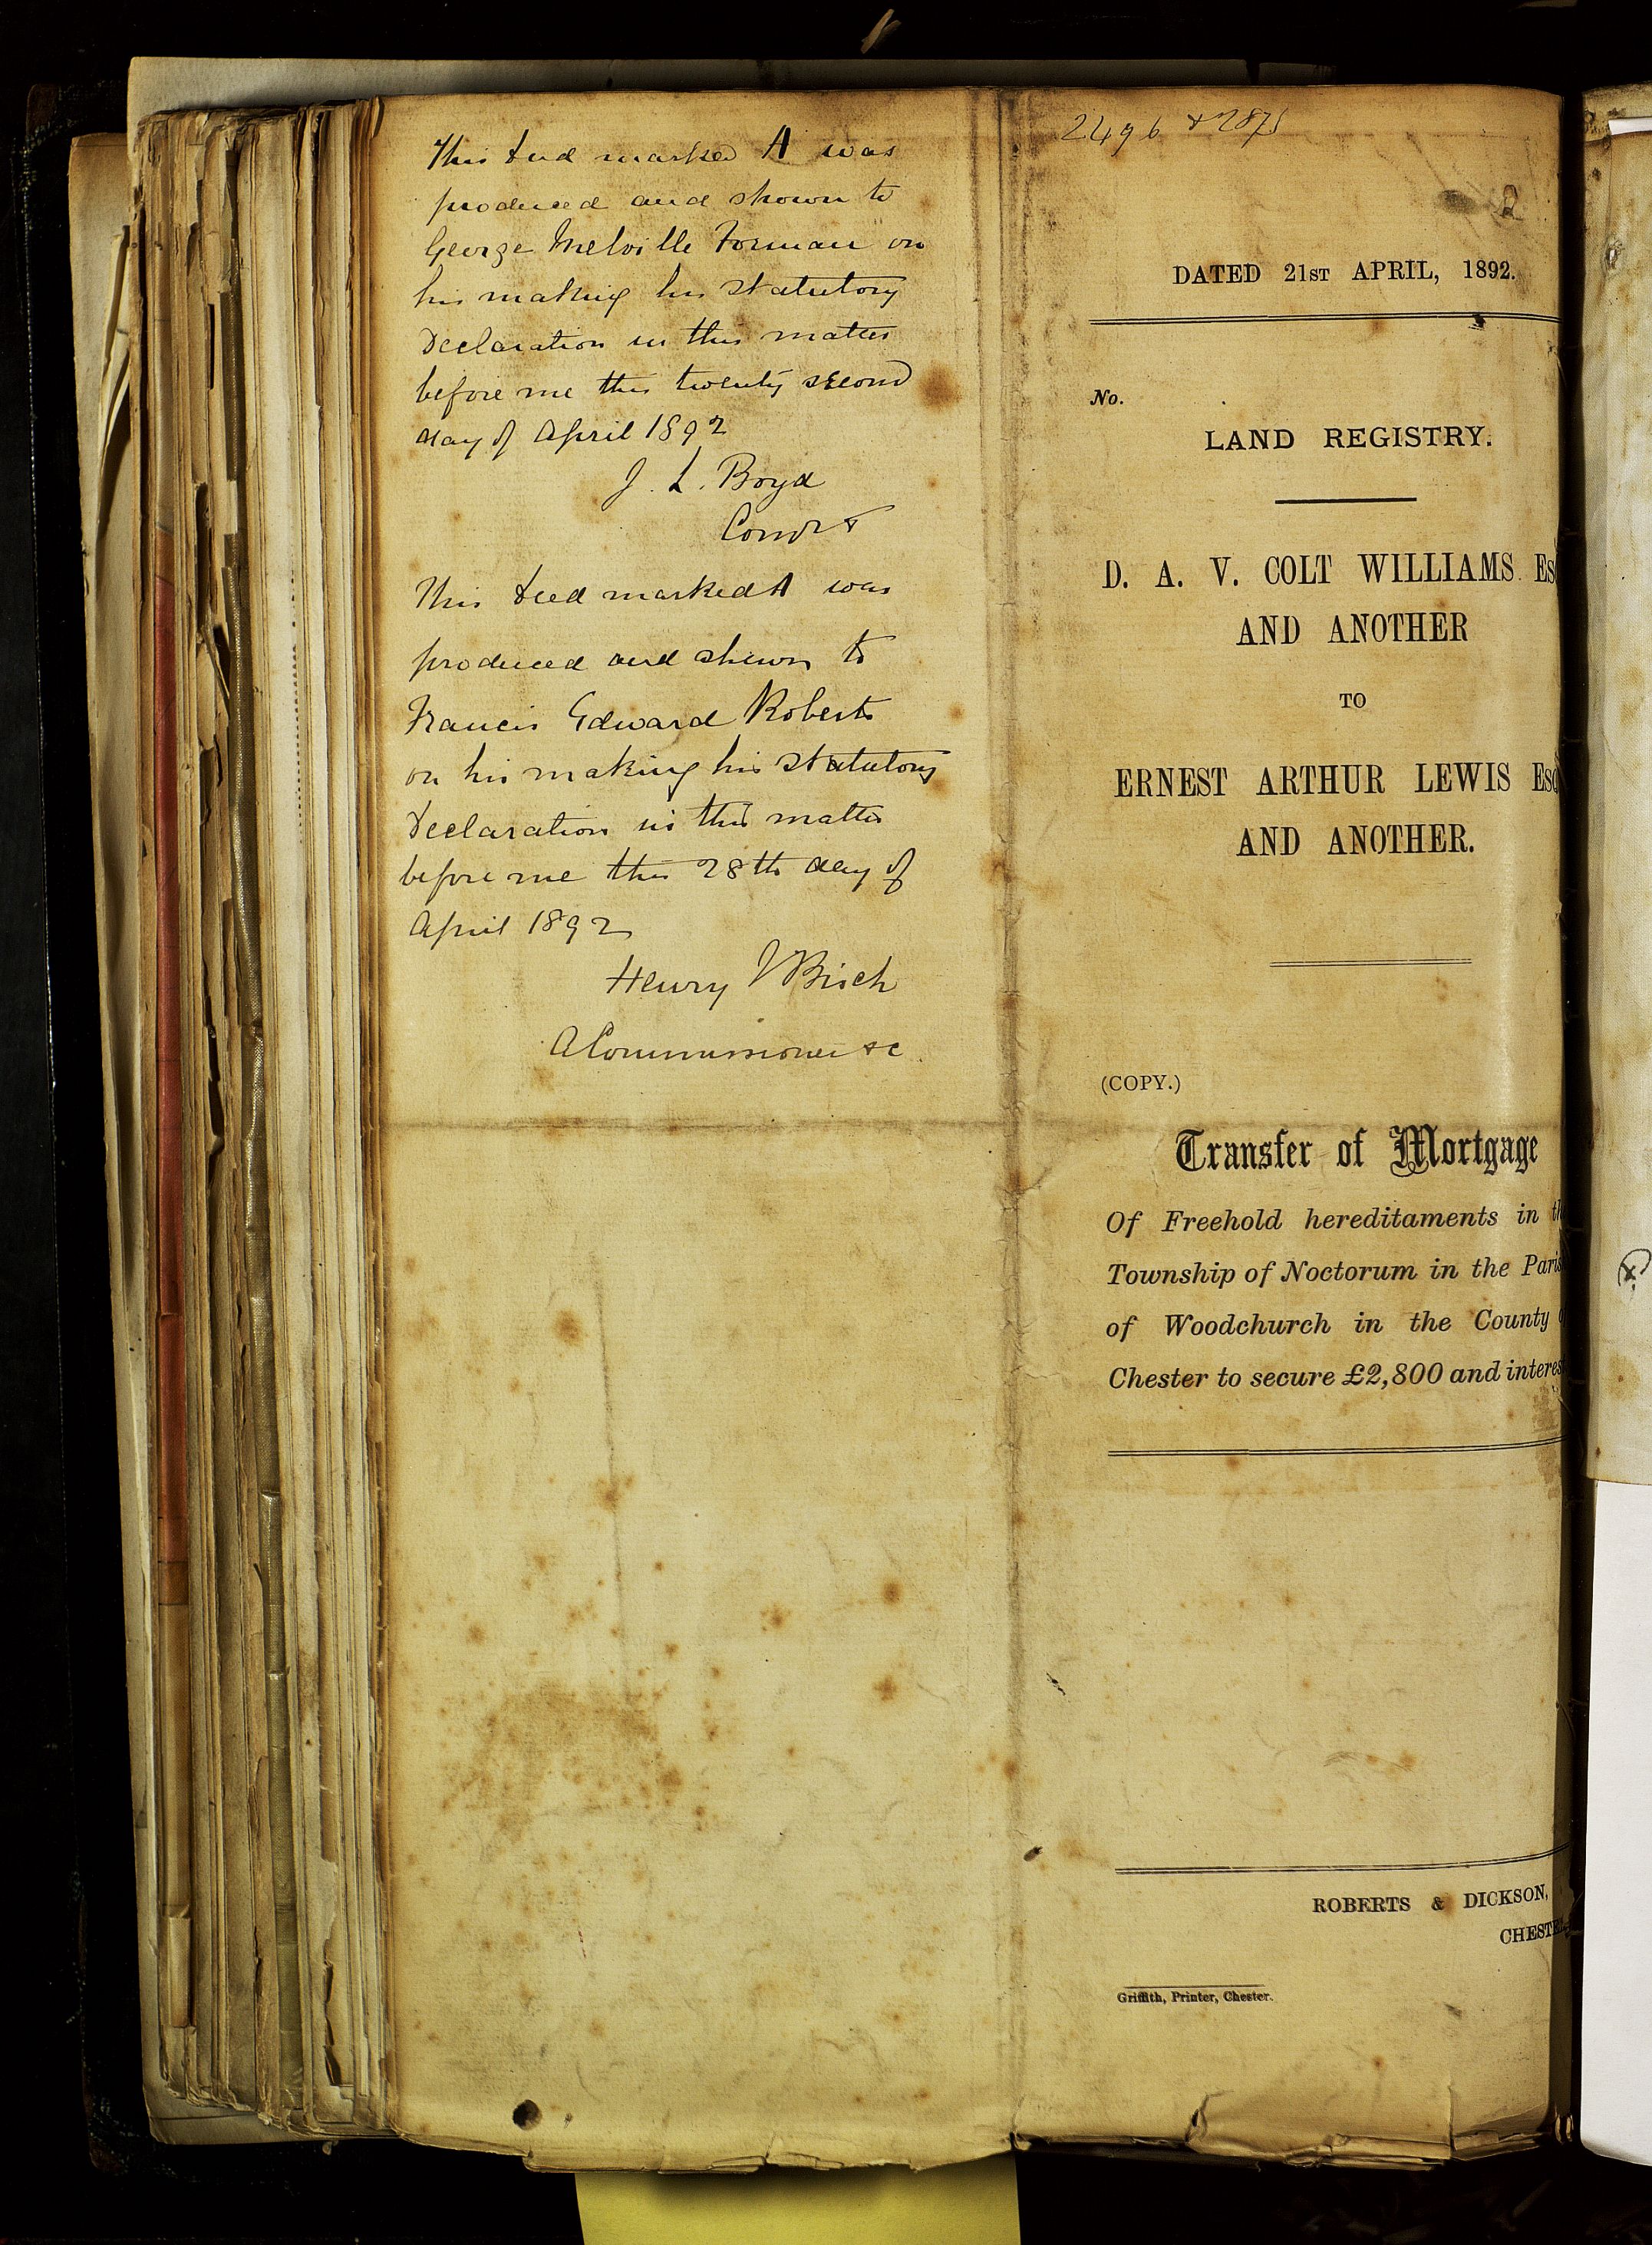 This deed marked A was
produced and shown to
George Melville Forman on
his making his statutory
Declaration in this matter
before me this twenty second
day of April 1892
J. L. Boyd
This deed marked A was
produced and shewn to
Francis Edward Roberts
on his making his statutory
Declaration in this matter
before me this 28th day of
April 1892
Henry Birch
A Commissioner &c
2496 & 2875
2
DATED 21ST APRIL, 1892.
No.
LAND REGISTRY.
D. A. V. COLT WILLIAMS Es
AND ANOTHER
TO
ERNEST ARTHUR LEWIS Esq
AND ANOTHER.
(COPY.)
Transfer of Mortgage
Of Freehold hereditaments in th
Township of Noctorum in the Paris
of Woodchurch in the County
Chester to secure £2,800 and interes
ROBERTS & DICKSON,
CHESTE
Griffith, Printer, Chester.